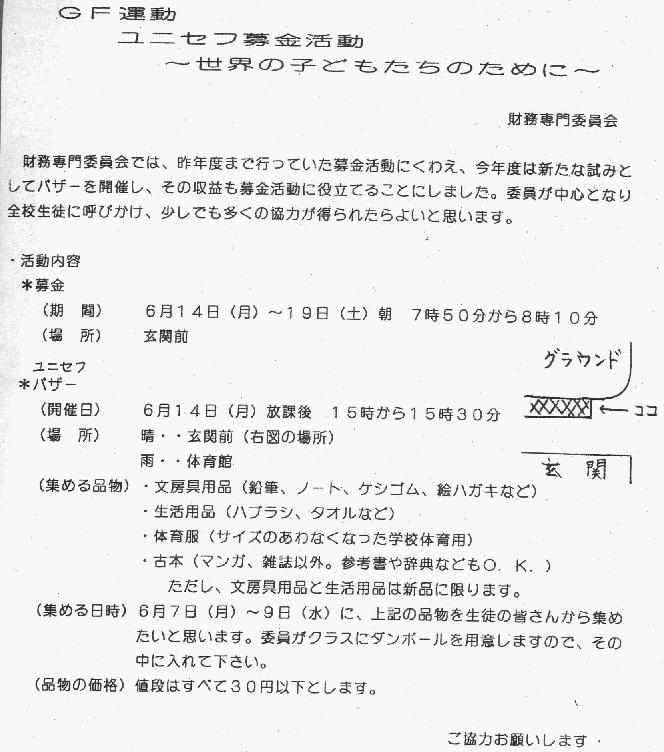 GF運動
ユニセフ募金活動
～世界の子どもたちのために～
財務専門委員会
財務専門委員会では、昨年度まで行っていた募金活動にくわえ、今年度は新たな試みと
してバザーを開催し、その収益も募金活動に役立てることにしました。委員が中心となり
全校生徒に呼びかけ、少しでも多くの協力が得られたらよいと思います。
・活動内容
＊募金
（期　間）　６月１４日（月）～１９日（土）朝　７時５０分から８時１０分
（場　所）　玄関前
ユニセフ
＊バザー
（開催日）　６月１４日（月）放課後　１５時から１５時３０分
（場　所）　晴・・玄関前（右図の場所）
雨・・体育館
グラウンド
←ココ
玄　関
（集める品物）・文房具用品（鉛筆、ノート、ケシゴム、絵ハガキなど）
・生活用品（ハブラシ、タオルなど）
・体育服（サイズのあわなくなった学校体育用）
・古本（マンガ、雑誌以外。参考書や辞典などもＯ．Ｋ．）
ただし、文房具用品と生活用品は新品に限ります。
（集める日時）６月７日（月）～９日（水）に、上記の品物を生徒の皆さんから集め
たいと思います。委員がクラスにダンボールを用意しますので、その
中に入れて下さい。
（品物の価格）値段はすべて３０円以下とします。
ご協力お願いします